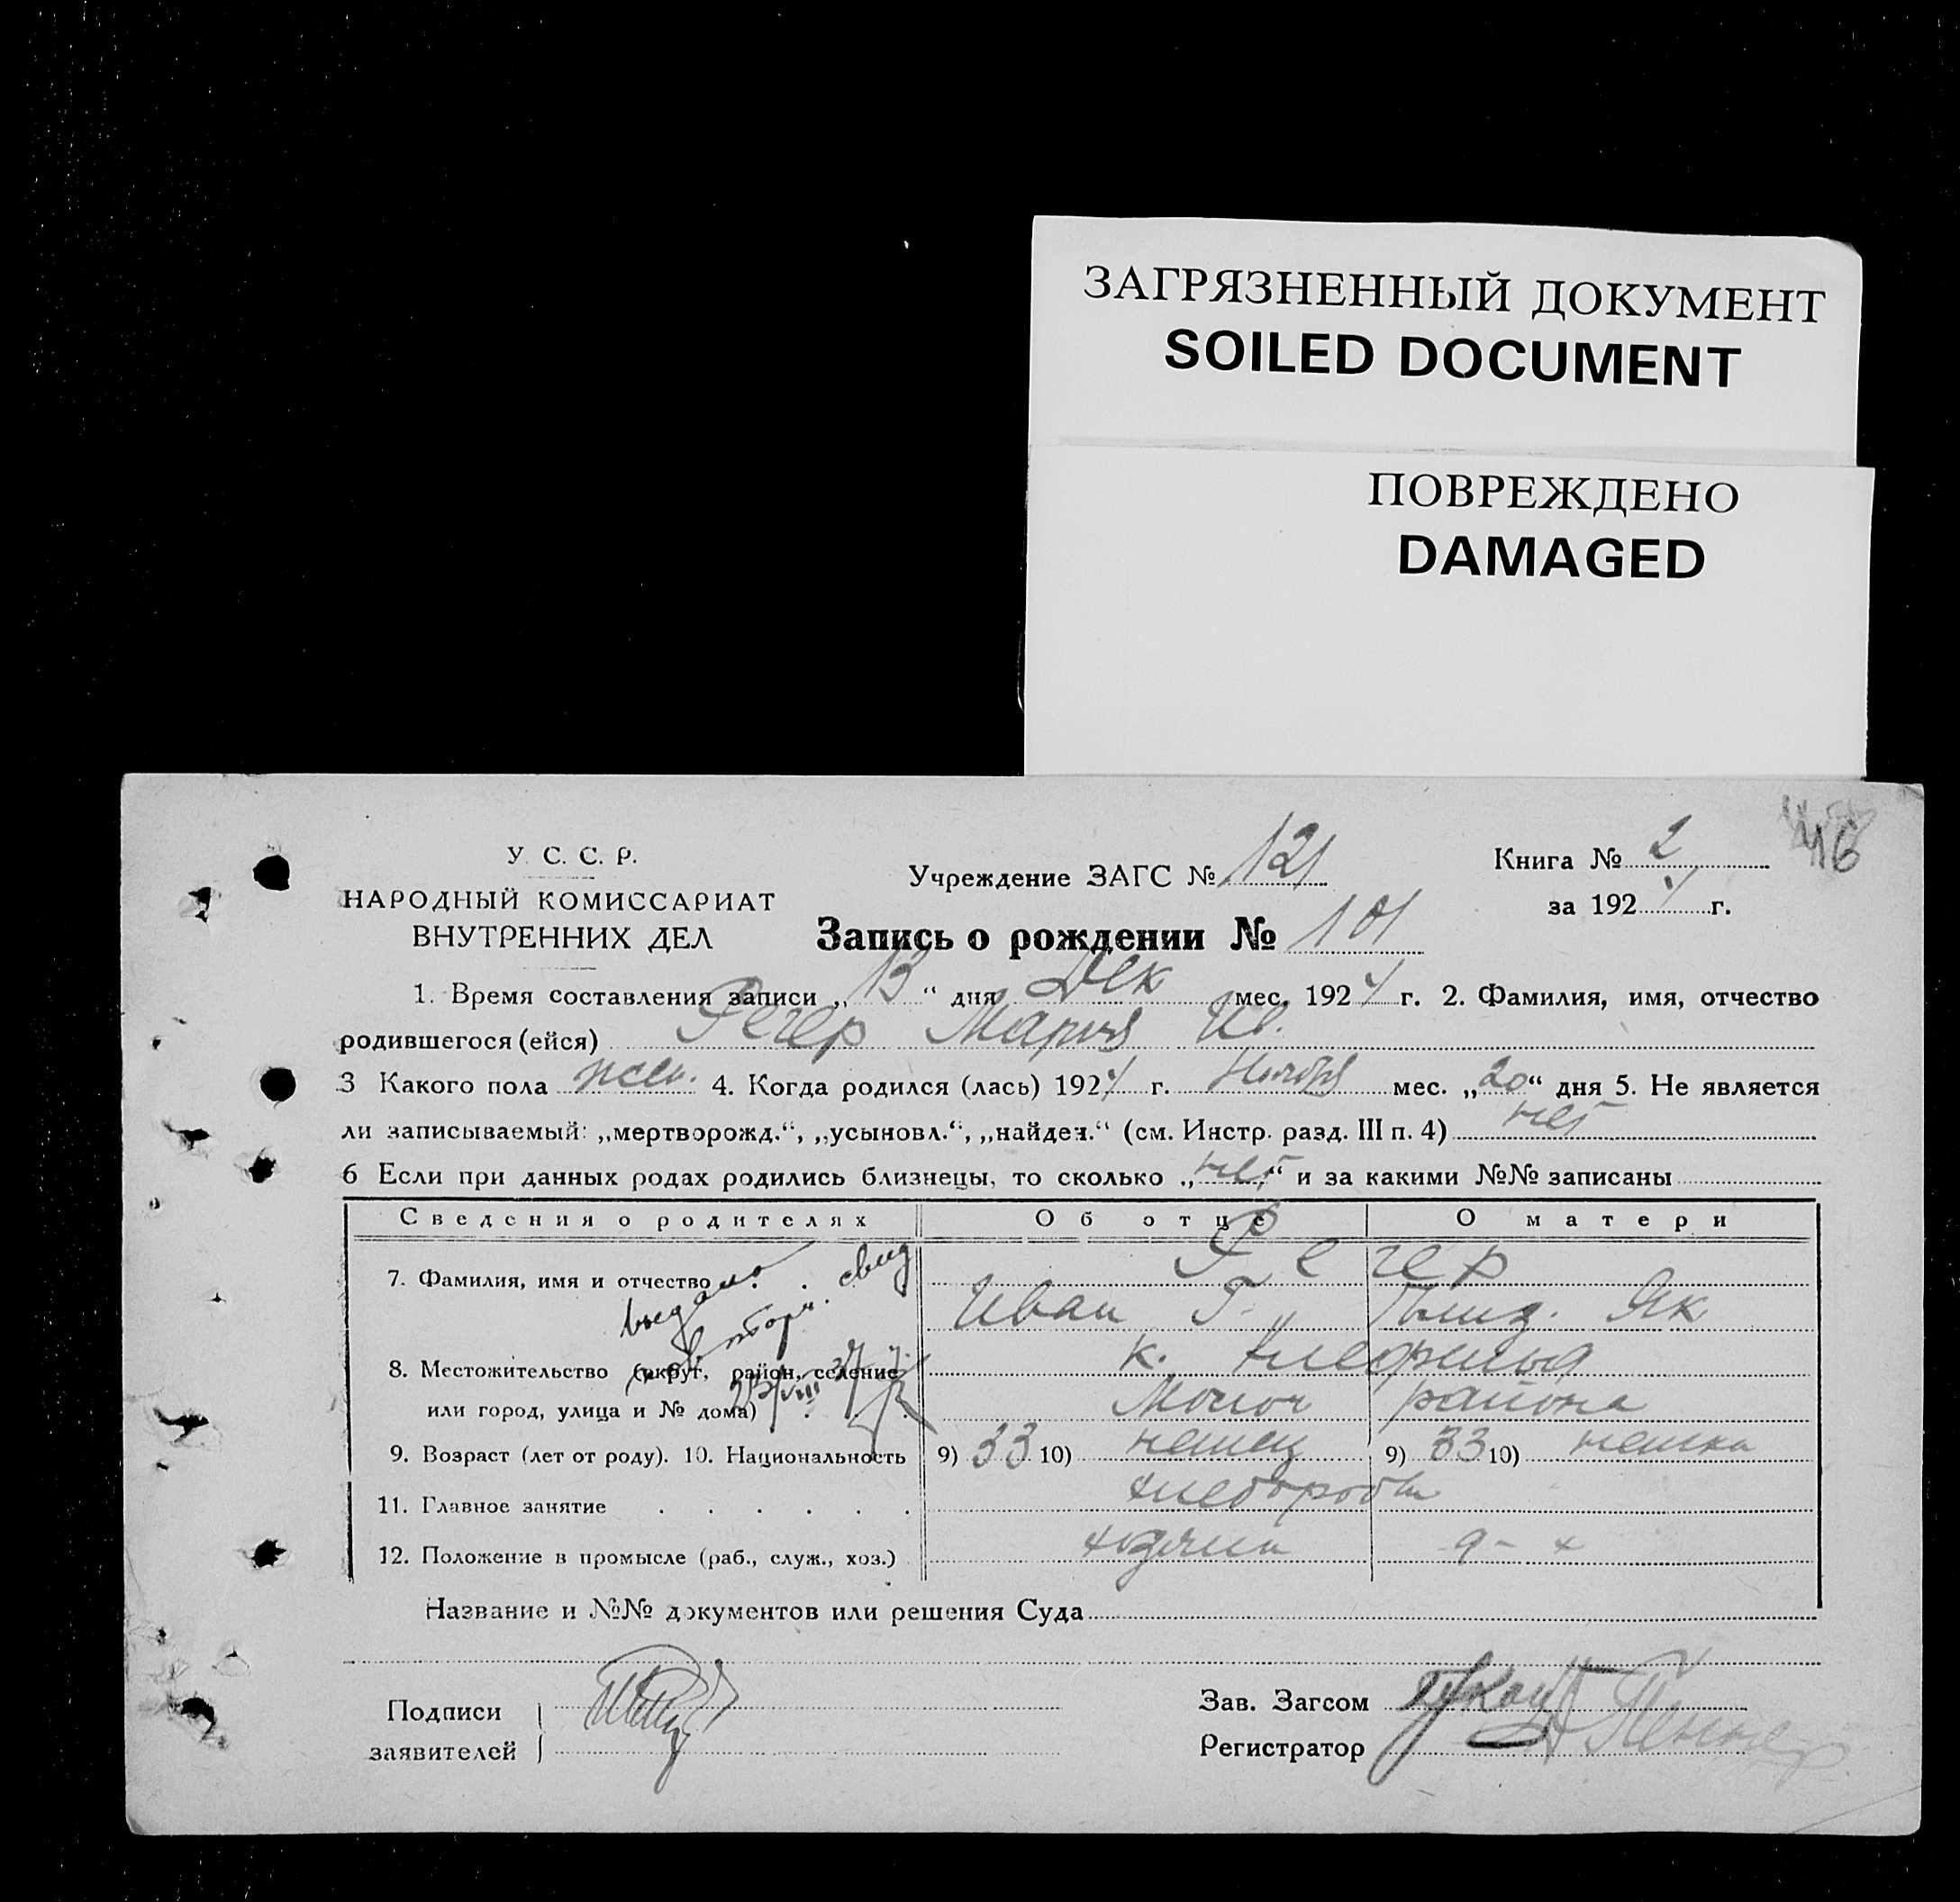 ЗАГРЯЗНЕННЫЙ ДОКУМЕНТ
SOILED DOCUMENT
ПОВРЕЖДЕНО
DAMAGED
46
У. С. С. Р.
НАРОДНЫЙ КОМИССАРИАТ
ВНУТРЕННИХ ДЕЛ
Учреждение ЗАГС № 121
Книга № 2
за 1924 г.
Запись о рождении № 101
1. Время составления записи „13“ дня Дек мес. 1924 г. 2. Фамилия, имя, отчество
родившегося (ейся) Регер Мария Ив.
3 Какого пола жен. 4. Когда родился (лась) 1924 г. Ноября мес. „20“ дня 5. Не является
ли записываемый: „мертворожд.“, „усыновл.“, „найден.“ (см. Инстр. разд. III п. 4) нет
6 Если при данных родах родились близнецы, то сколько „нет“ и за какими №№ записаны
Сведения о родителях Об отце О матери
7. Фамилия, имя и отчество Регер
Иван Г. Як
выдано повторн. свид
8. Местожительство (округ, район, селение к.
или город, улица и № дома) Молоч района
9. Возраст (лет от роду). 10. Национальность 9) 33 10) немец 9) 33 10) немка
11. Главное занятие хлебороб
12. Положение в промысле (раб., служ., хоз.) хозяин
Название и №№ документов или решения Суда
Подписи
заявителей
Зав. Загсом
Регистратор Пеннер